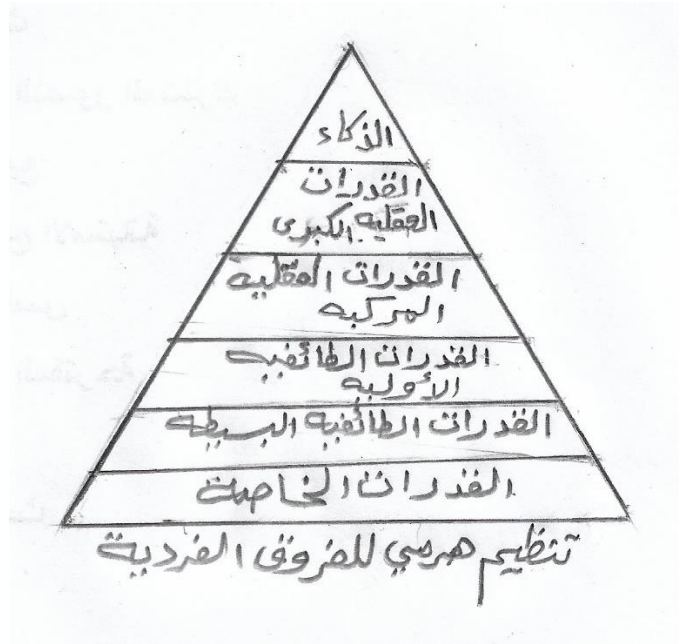 الذكاء
القدرات
العقليه الكبرى
القدرات العقليه
المركبه
القدرات الطائفيه
الأوليه
القدرات الطائفيه البسيطه
القدرات الخاصة
تنظيم هرمي للفروق الفردية